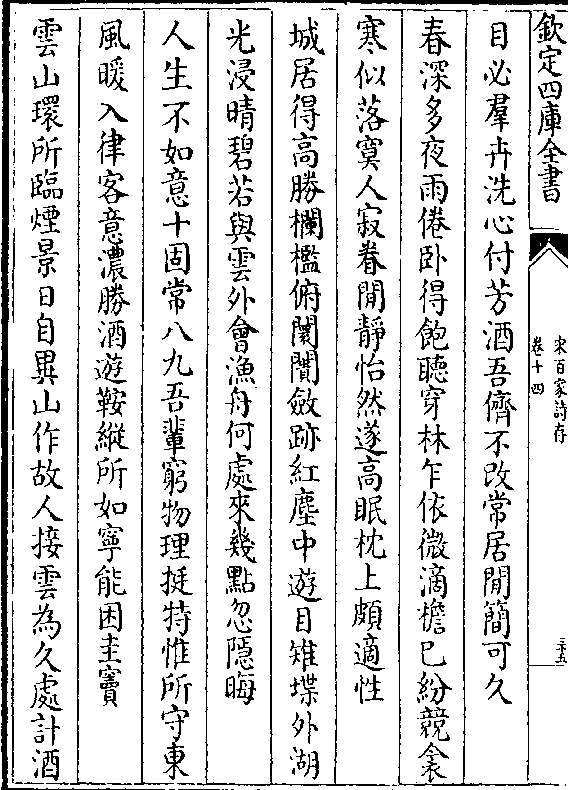 欽定四庫全書
宋百家詩存
卷十四
三五
目必羣卉洗心付芳酒吾儕不改常居閒簡可久
春深多夜雨倦卧得飽聽穿林乍依微滴檐已紛競衾
寒似落寞人寂眷閒靜怡然遂高眠枕上頗適性
城居得高勝欄檻俯闤闠斂跡紅塵中遊目雉堞外湖
光浸晴碧若與雲外會漁舟何處來幾點忽隱晦
人生不如意十固常八九吾輩窮物理挺特惟所守東
風暖入律客意濃勝酒遊鞍縱所如寧能困圭竇
雲山環所臨煙景日自異山作故人接雲為久處計酒